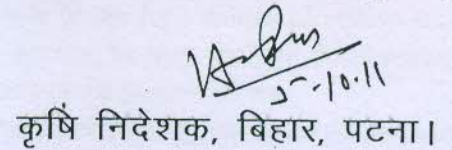 5-10-11
कृषि निदेशक, बिहार, पटना।